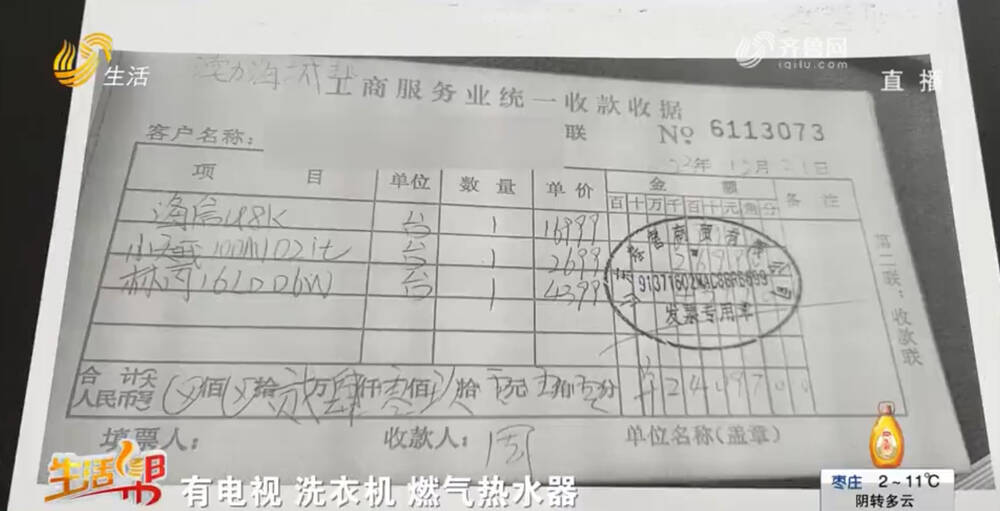 生活
齐鲁网
iqilu.com
直播
渤海
工商服务业统一收款收据
客户名称:
联 № 6113073
22年12月21日
项目 单位 数量 单价 金额 备注
百十万千百十元角分
海信U8K 台 1 16999
小天鹅100 台 1 2699
林内16LD06W 台 1 4399
发票专用章
第二联:收款联
合计人民币(大写) 佰 拾 贰万肆仟 佰 拾 元 角 分 ¥2409700
填票人: 收款人:周 单位名称(盖章)
生活帮
有电视 洗衣机 燃气热水器
枣庄 2~11℃
阴转多云